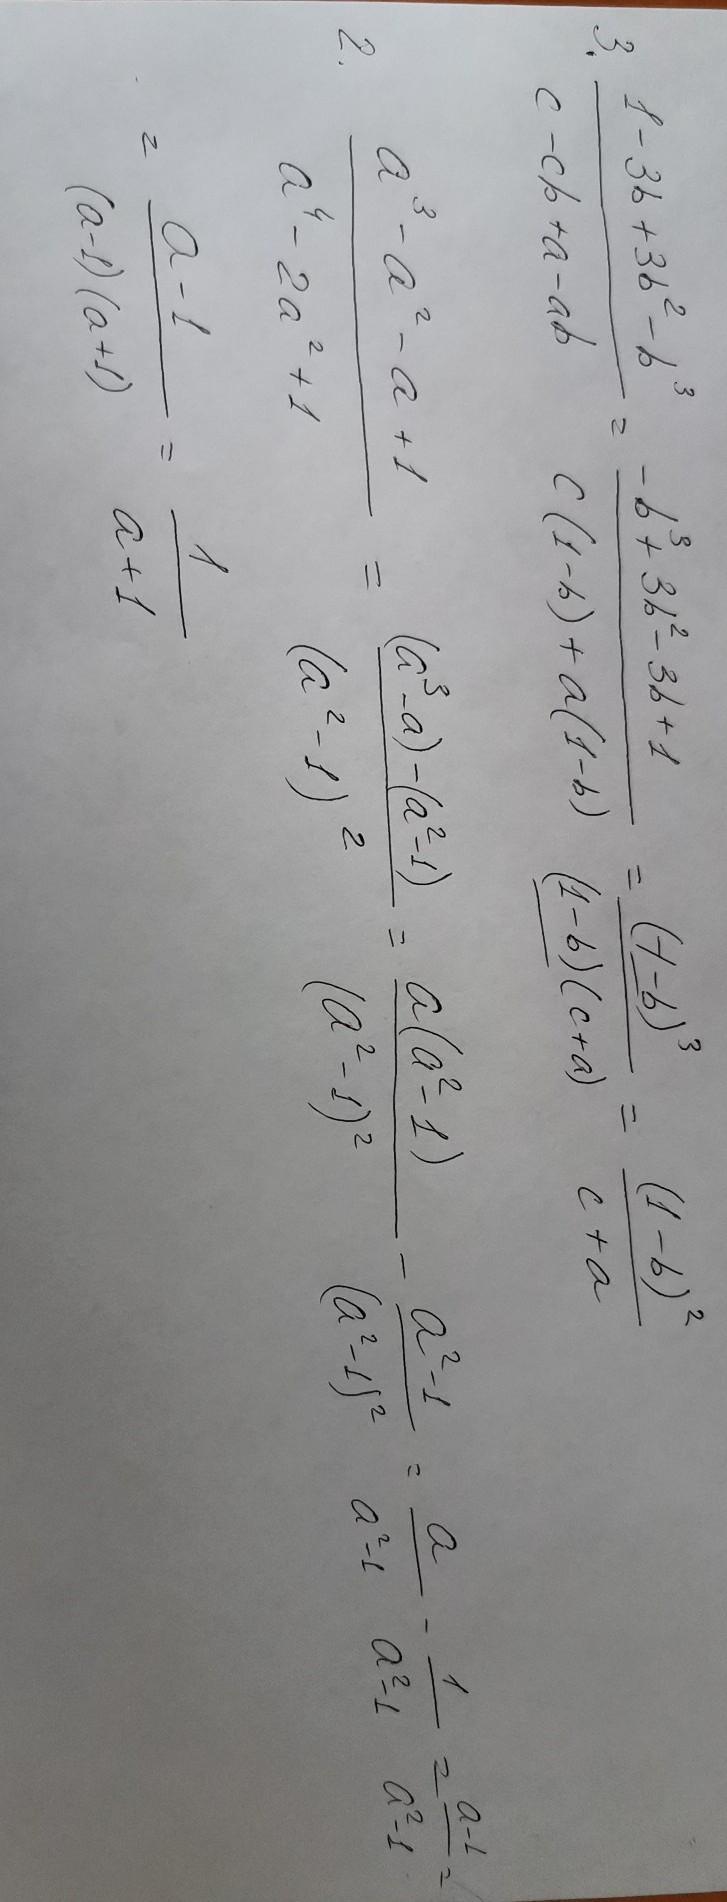 3. (1 - 3b + 3b² - b³)/(c - cb + a - ab) = (-b³ + 3b² - 3b + 1)/(c(1-b) + a(1-b)) = (1-b)³/((1-b)(c+a)) = (1-b)²/(c+a)
2. (a³ - a² - a + 1)/(a⁴ - 2a² + 1) = ((a³-a) - (a²-1))/(a²-1)² = a(a²-1)/(a²-1)² - (a²-1)/(a²-1)² = a/(a²-1) - 1/(a²-1) = (a-1)/(a²-1) =
= (a-1)/((a-1)(a+1)) = 1/(a+1)